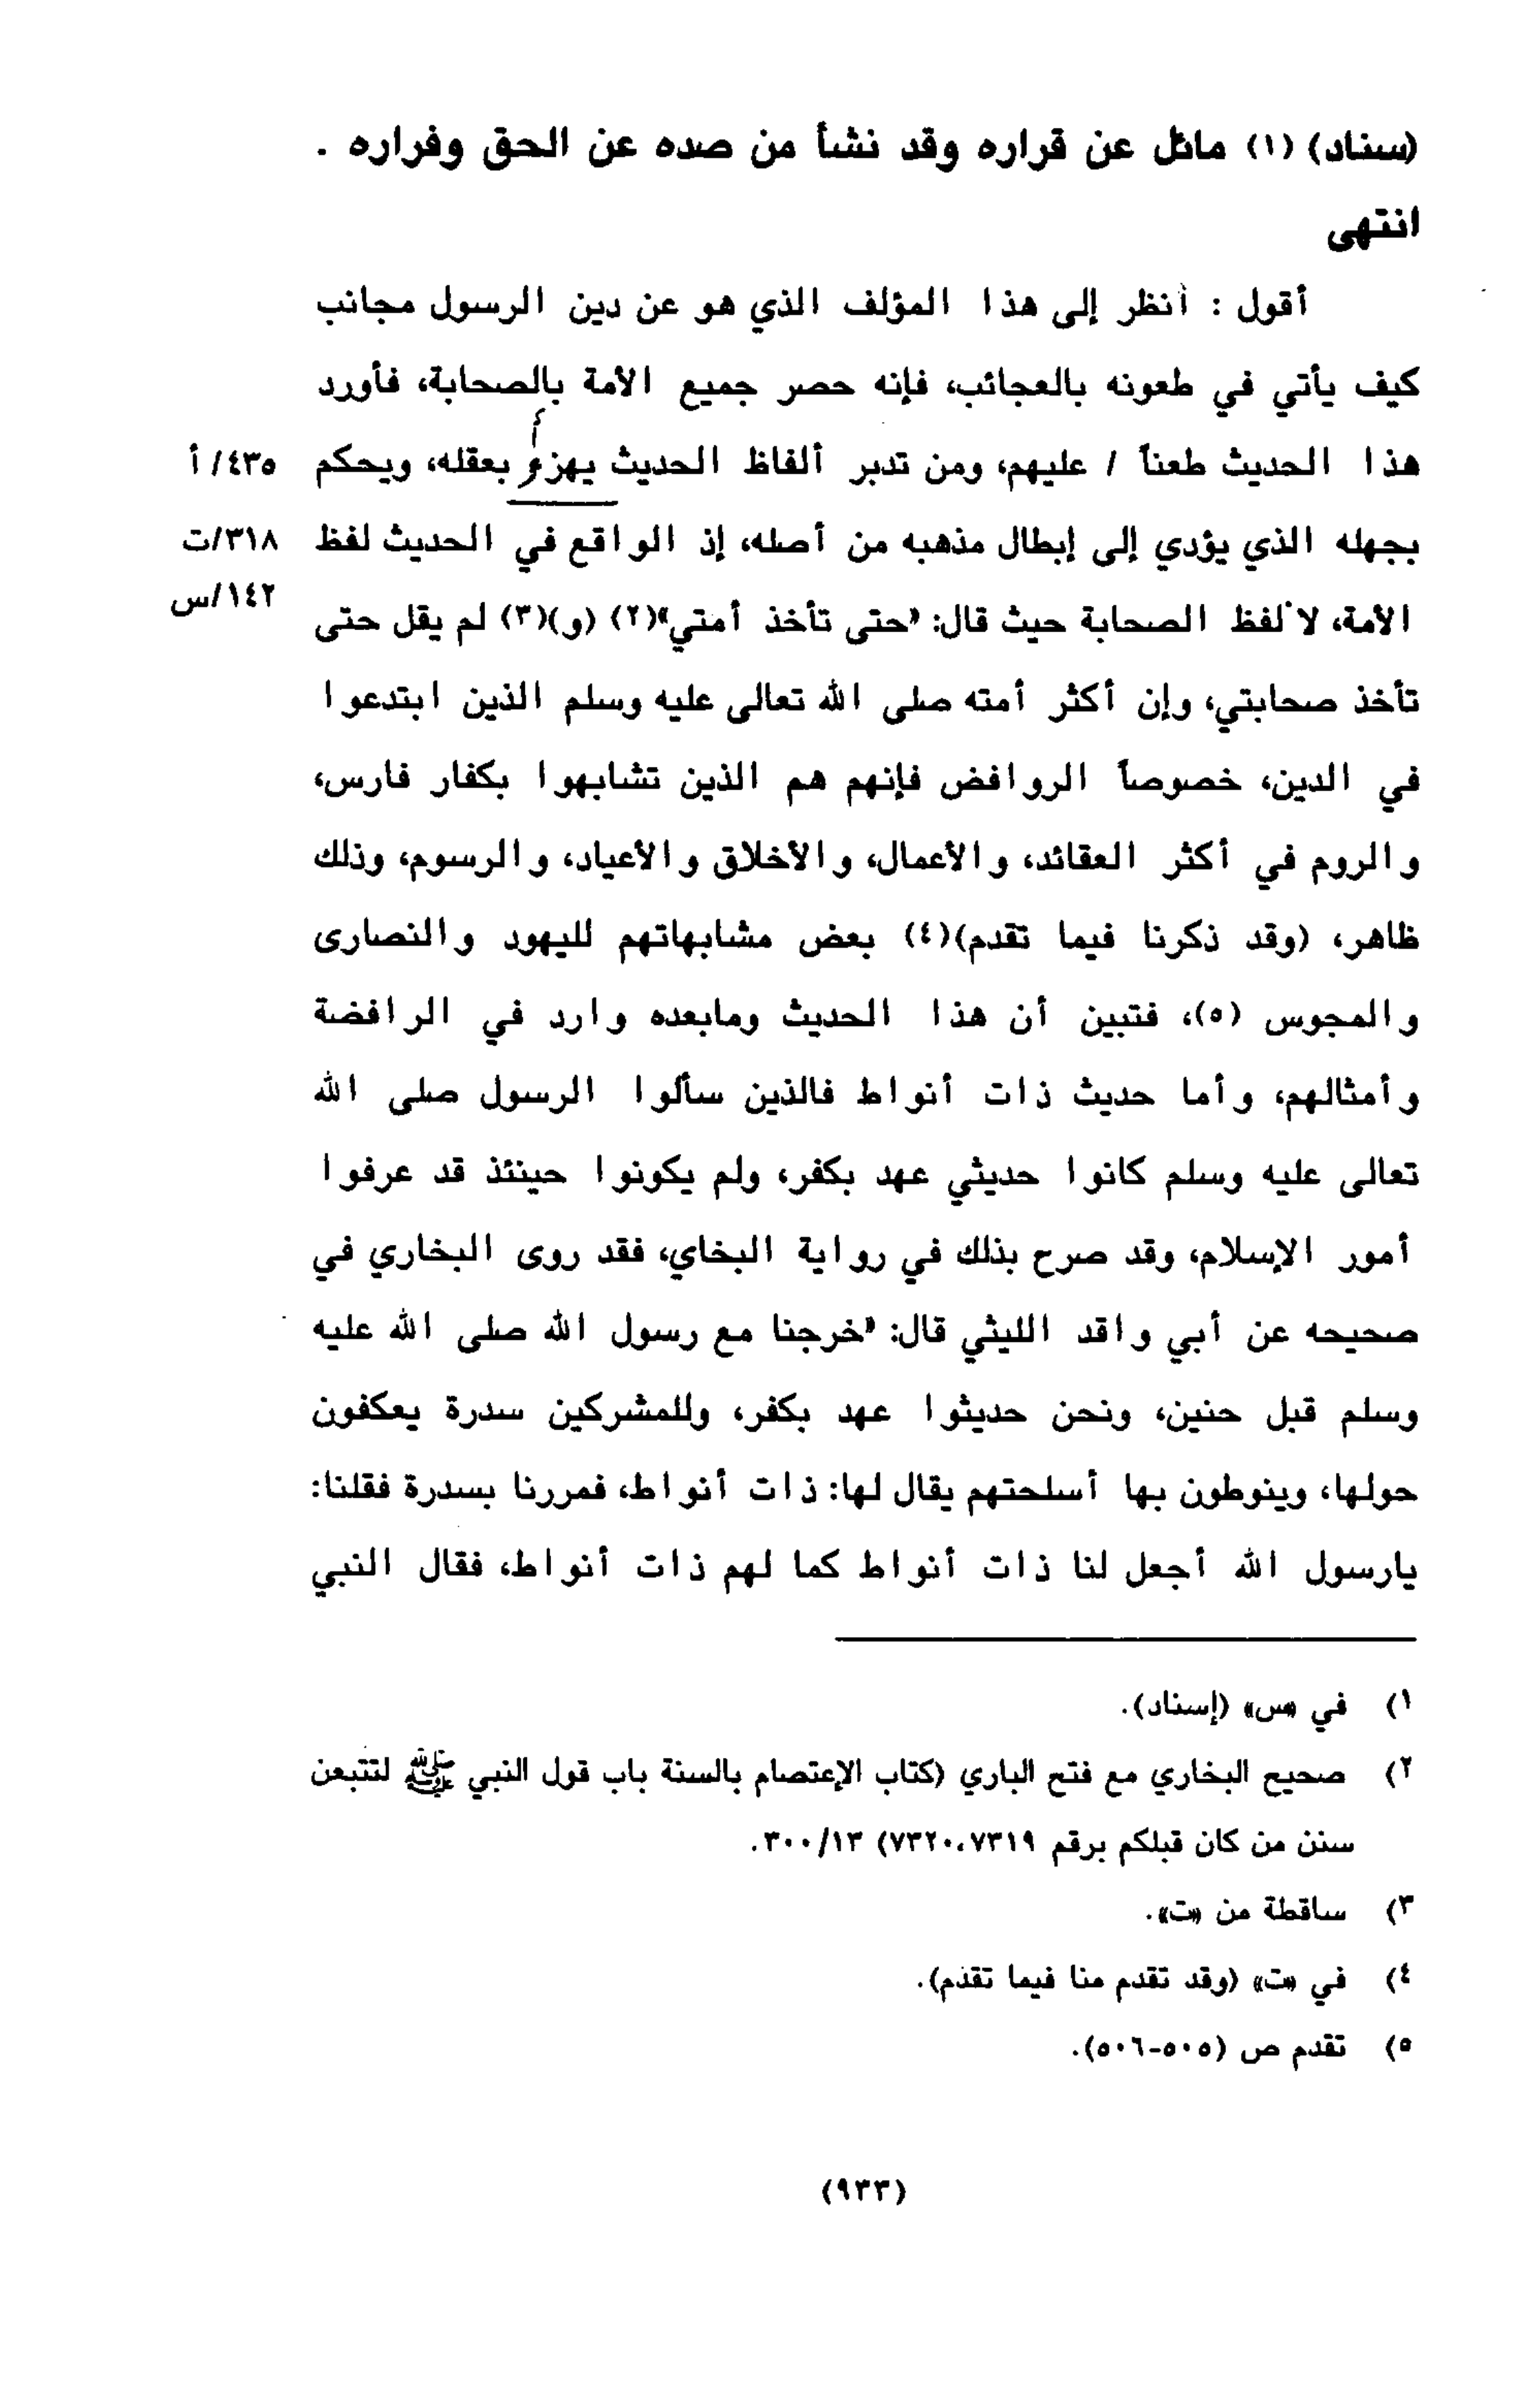 (سناد) (١) مائل عن قراره وقد نشأ من صده عن الحق وفراره .
انتهى
أقول : أنظر إلى هذا المؤلف الذي هو عن دين الرسول مجانب
كيف يأتي في طعونه بالعجائب، فإنه حصر جميع الأمة بالصحابة، فأورد
هذا الحديث طعناً / عليهم، ومن تدبر ألفاظ الحديث يهزء بعقله، ويحكم ٤٣٥/ أ
بجهله الذي يؤدي إلى إبطال مذهبه من أصله، إذ الواقع في الحديث لفظ ٣١٨/ت
الأمة، لا لفظ الصحابة حيث قال: «حتى تأخذ أمتي»(٢) (و)(٣) لم يقل حتى ١٤٢/س
تأخذ صحابتي، وإن أكثر أمته صلى الله تعالى عليه وسلم الذين ابتدعوا
في الدين، خصوصاً الروافض فإنهم هم الذين تشابهوا بكفار فارس،
والروم في أكثر العقائد، والأعمال، والأخلاق والأعياد، والرسوم، وذلك
ظاهر، (وقد ذكرنا فيما تقدم)(٤) بعض مشابهاتهم لليهود والنصارى
والمجوس (٥)، فتبين أن هذا الحديث ومابعده وارد في الرافضة
وأمثالهم، وأما حديث ذات أنواط فالذين سألوا الرسول صلى الله
تعالى عليه وسلم كانوا حديثي عهد بكفر، ولم يكونوا حينئذ قد عرفوا
أمور الإسلام، وقد صرح بذلك في رواية البخاي، فقد روى البخاري في
صحيحه عن أبي واقد الليثي قال: «خرجنا مع رسول الله صلى الله عليه
وسلم قبل حنين، ونحن حديثوا عهد بكفر، وللمشركين سدرة يعكفون
حولها، وينوطون بها أسلحتهم يقال لها: ذات أنواط، فمررنا بسدرة فقلنا:
يارسول الله أجعل لنا ذات أنواط كما لهم ذات أنواط، فقال النبي
١) في «س» (إسناد).
٢) صحيح البخاري مع فتح الباري (كتاب الإعتصام بالسنة باب قول النبي ﷺ لتتبعن
سنن من كان قبلكم برقم ٧٣١٩،٧٣٢٠) ١٣/ ٣٠٠.
٣) ساقطة من «ت».
٤) في «ت» (وقد تقدم منا فيما تقدم).
٥) تقدم ص (٥٠٥-٥٠٦).
(٩٣٣)